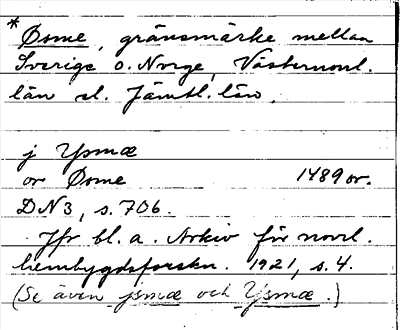 * Øsme, gränsmärke mellan
Sverige o. Norge, Västernorrl.
län el. Jämtl. län.
j Ysmæ
or Øsme 1489 or.
DN3, s. 706.
Jfr bl. a. Arkiv för norrl.
hembygdsforskn. 1921, s. 4.
(Se även jsmæ och Ysmæ.)